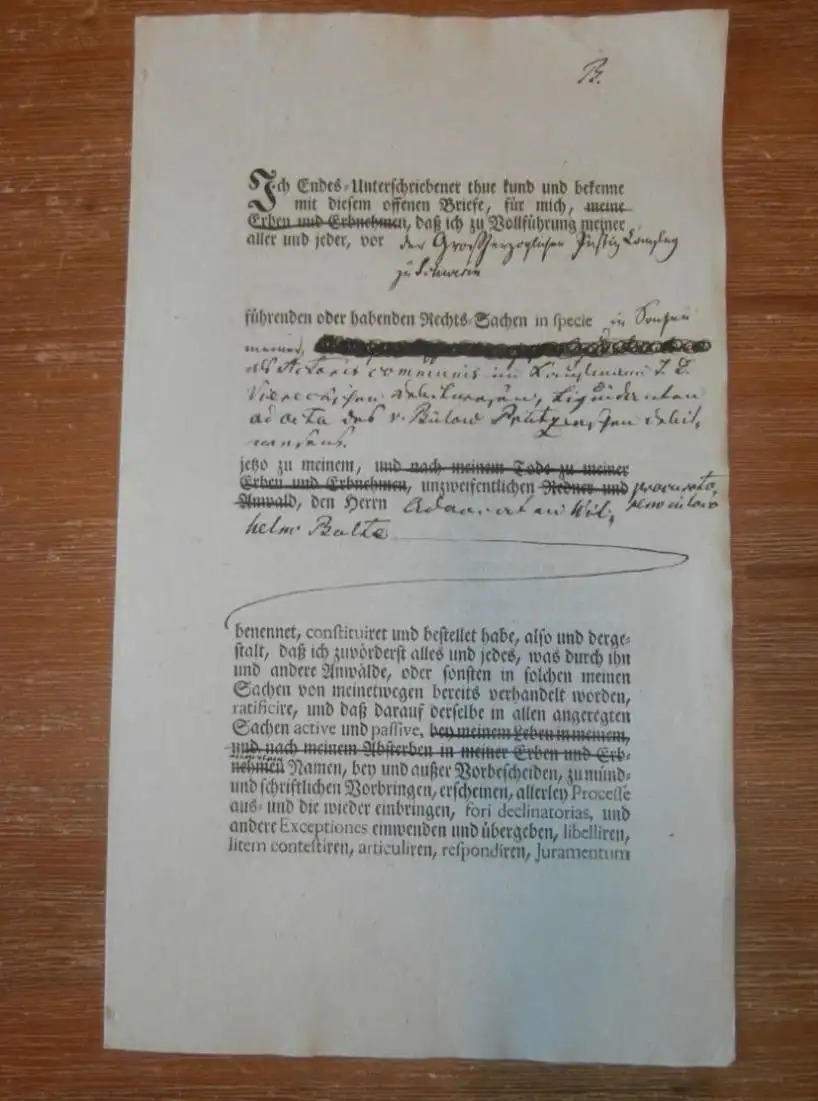 B.
Ich Endes-Unterschriebener thue kund und bekenne
mit diesem offenen Briefe, für mich, meine
Erben und Erbnehmen, daß ich zu Vollführung meiner
aller und jeder, vor der Großherzoglichen Justiz Canzley
zu Schwerin
führenden oder habenden Rechts-Sachen in specie in Sachen
meiner,
als Actoris communis im Kaufmann J. C.
Viereckschen Debitwesen, Liquidanten
ad acta des v. Bülow Prützenschen Debit-
wesens.
jetzo zu meinem, und nach meinem Tode zu meiner
Erben und Erbnehmen, unzweifentlichen Redner und procurato
Anwald, den Herrn Advocaten Wil-
helm Bolte
benennet, constituiret und bestellet habe, also und derge-
stalt, daß ich zuvörderst alles und jedes, was durch ihn
und andere Anwälde, oder sonsten in solchen meinen
Sachen von meinetwegen bereits verhandelt worden,
ratificire, und daß darauf derselbe in allen angeregten
Sachen active und passive, bey meinem Leben in meinem,
und nach meinem Absterben in meiner Erben und Erb-
nehmen Namen, bey und außer Vorbescheiden, zu münd-
und schriftlichen Vorbringen, erscheinen, allerley Processe
aus- und die wieder einbringen, fori declinatorias, und
andere Exceptiones einwenden und übergeben, libelliren,
litem contestiren, articuliren, respondiren, Juramentum